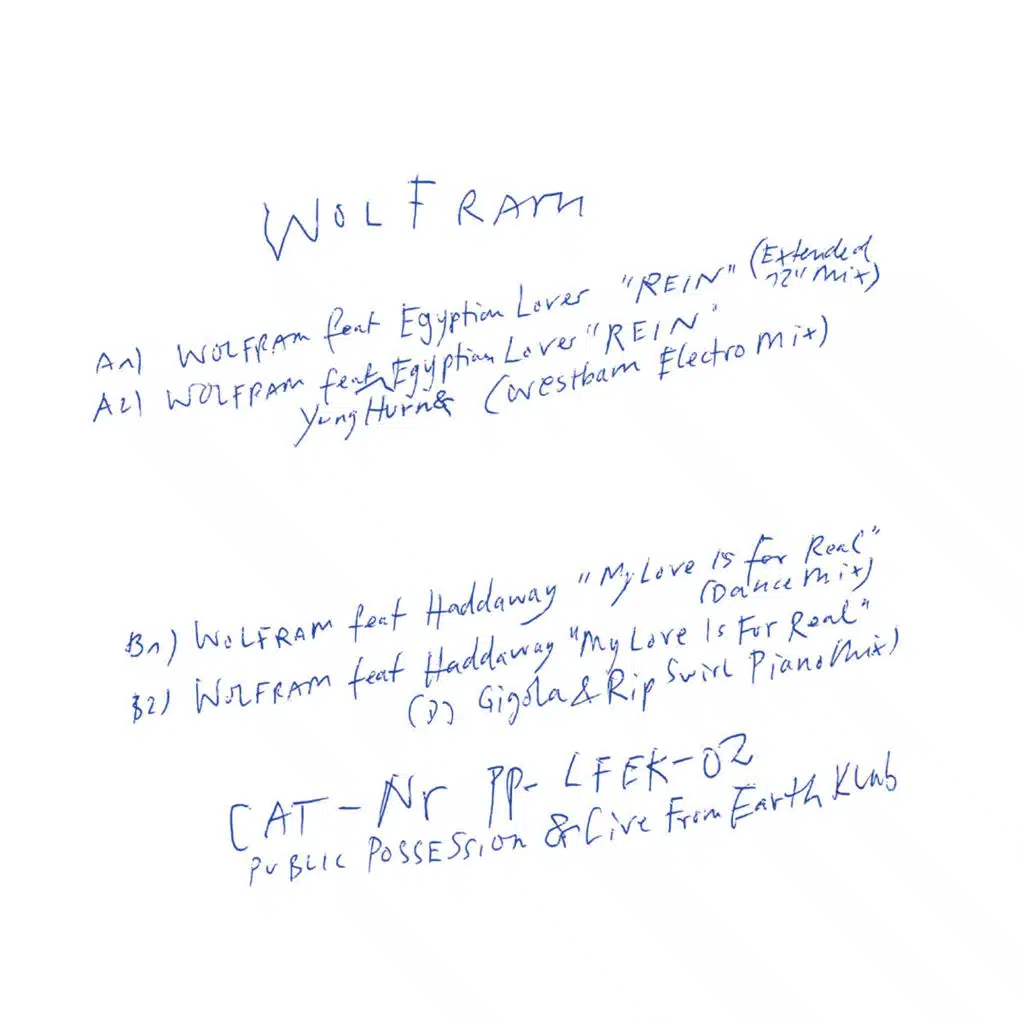 WOLFRAM
A1) WOLFRAM feat Egyptian Lover "REIN" (Extended
12" Mix)
A2) WOLFRAM feat Egyptian Lover "REIN"
Yung Hurn & (Westbam Electro Mix)
B1) WOLFRAM feat Haddaway "My Love Is For Real"
(Dance Mix)
B2) WOLFRAM feat Haddaway "My Love Is For Real"
(DJ Gigola & Rip Swirl Piano Mix)
CAT-Nr PP-LFEK-02
PUBLIC POSSESSION & Live From Earth Klub